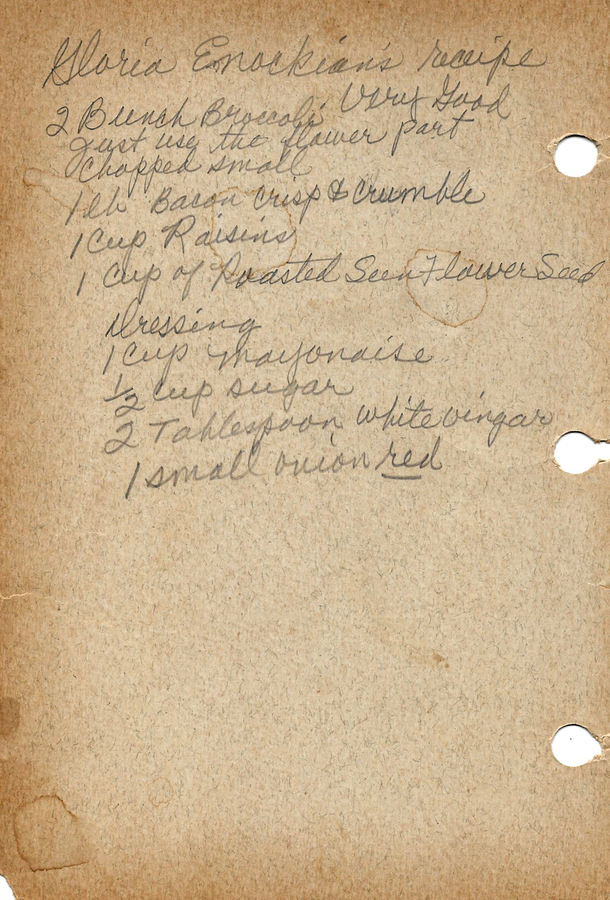 Gloria Enockian's recipe
Very Good
2 Bunch Broccoli
just use the flower part
chopped small
1 lb Bacon crisp & crumble
1 Cup Raisins
1 Cup of Roasted SunFlower Seed
Dressing
1 Cup mayonaise
1/2 Cup sugar
2 Tablespoon white vingar
1 small onion red